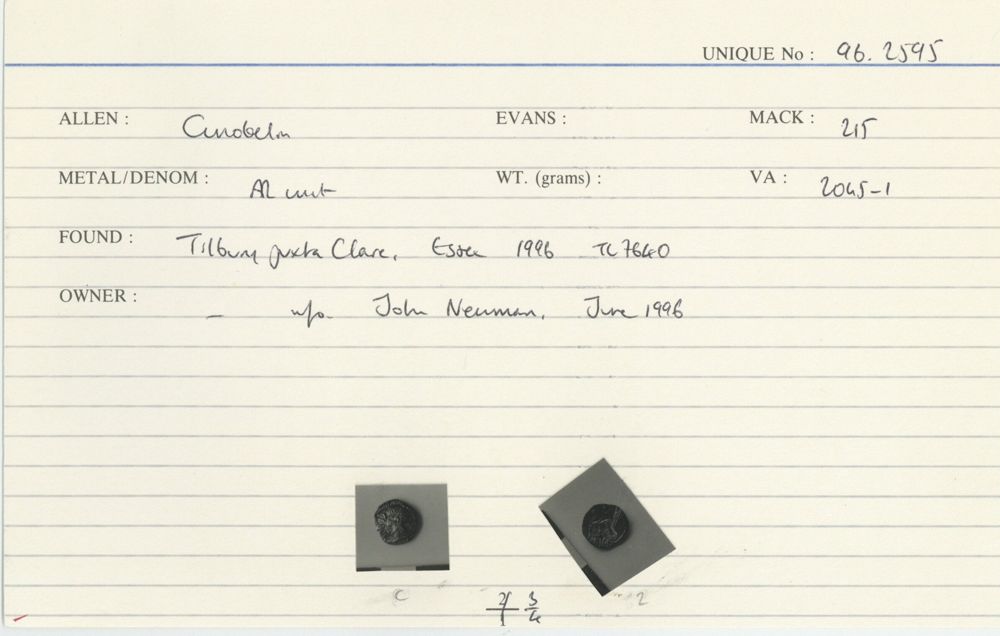 UNIQUE No : 96. 2595
ALLEN : Cunobelin EVANS : MACK : 215
METAL/DENOM : AR unit WT. (grams) : VA : 2045-1
FOUND : Tilbury juxta Clare, Essex 1996 TL 7640
OWNER : — info. John Newman, June 1996
C 2
2/1 3/4